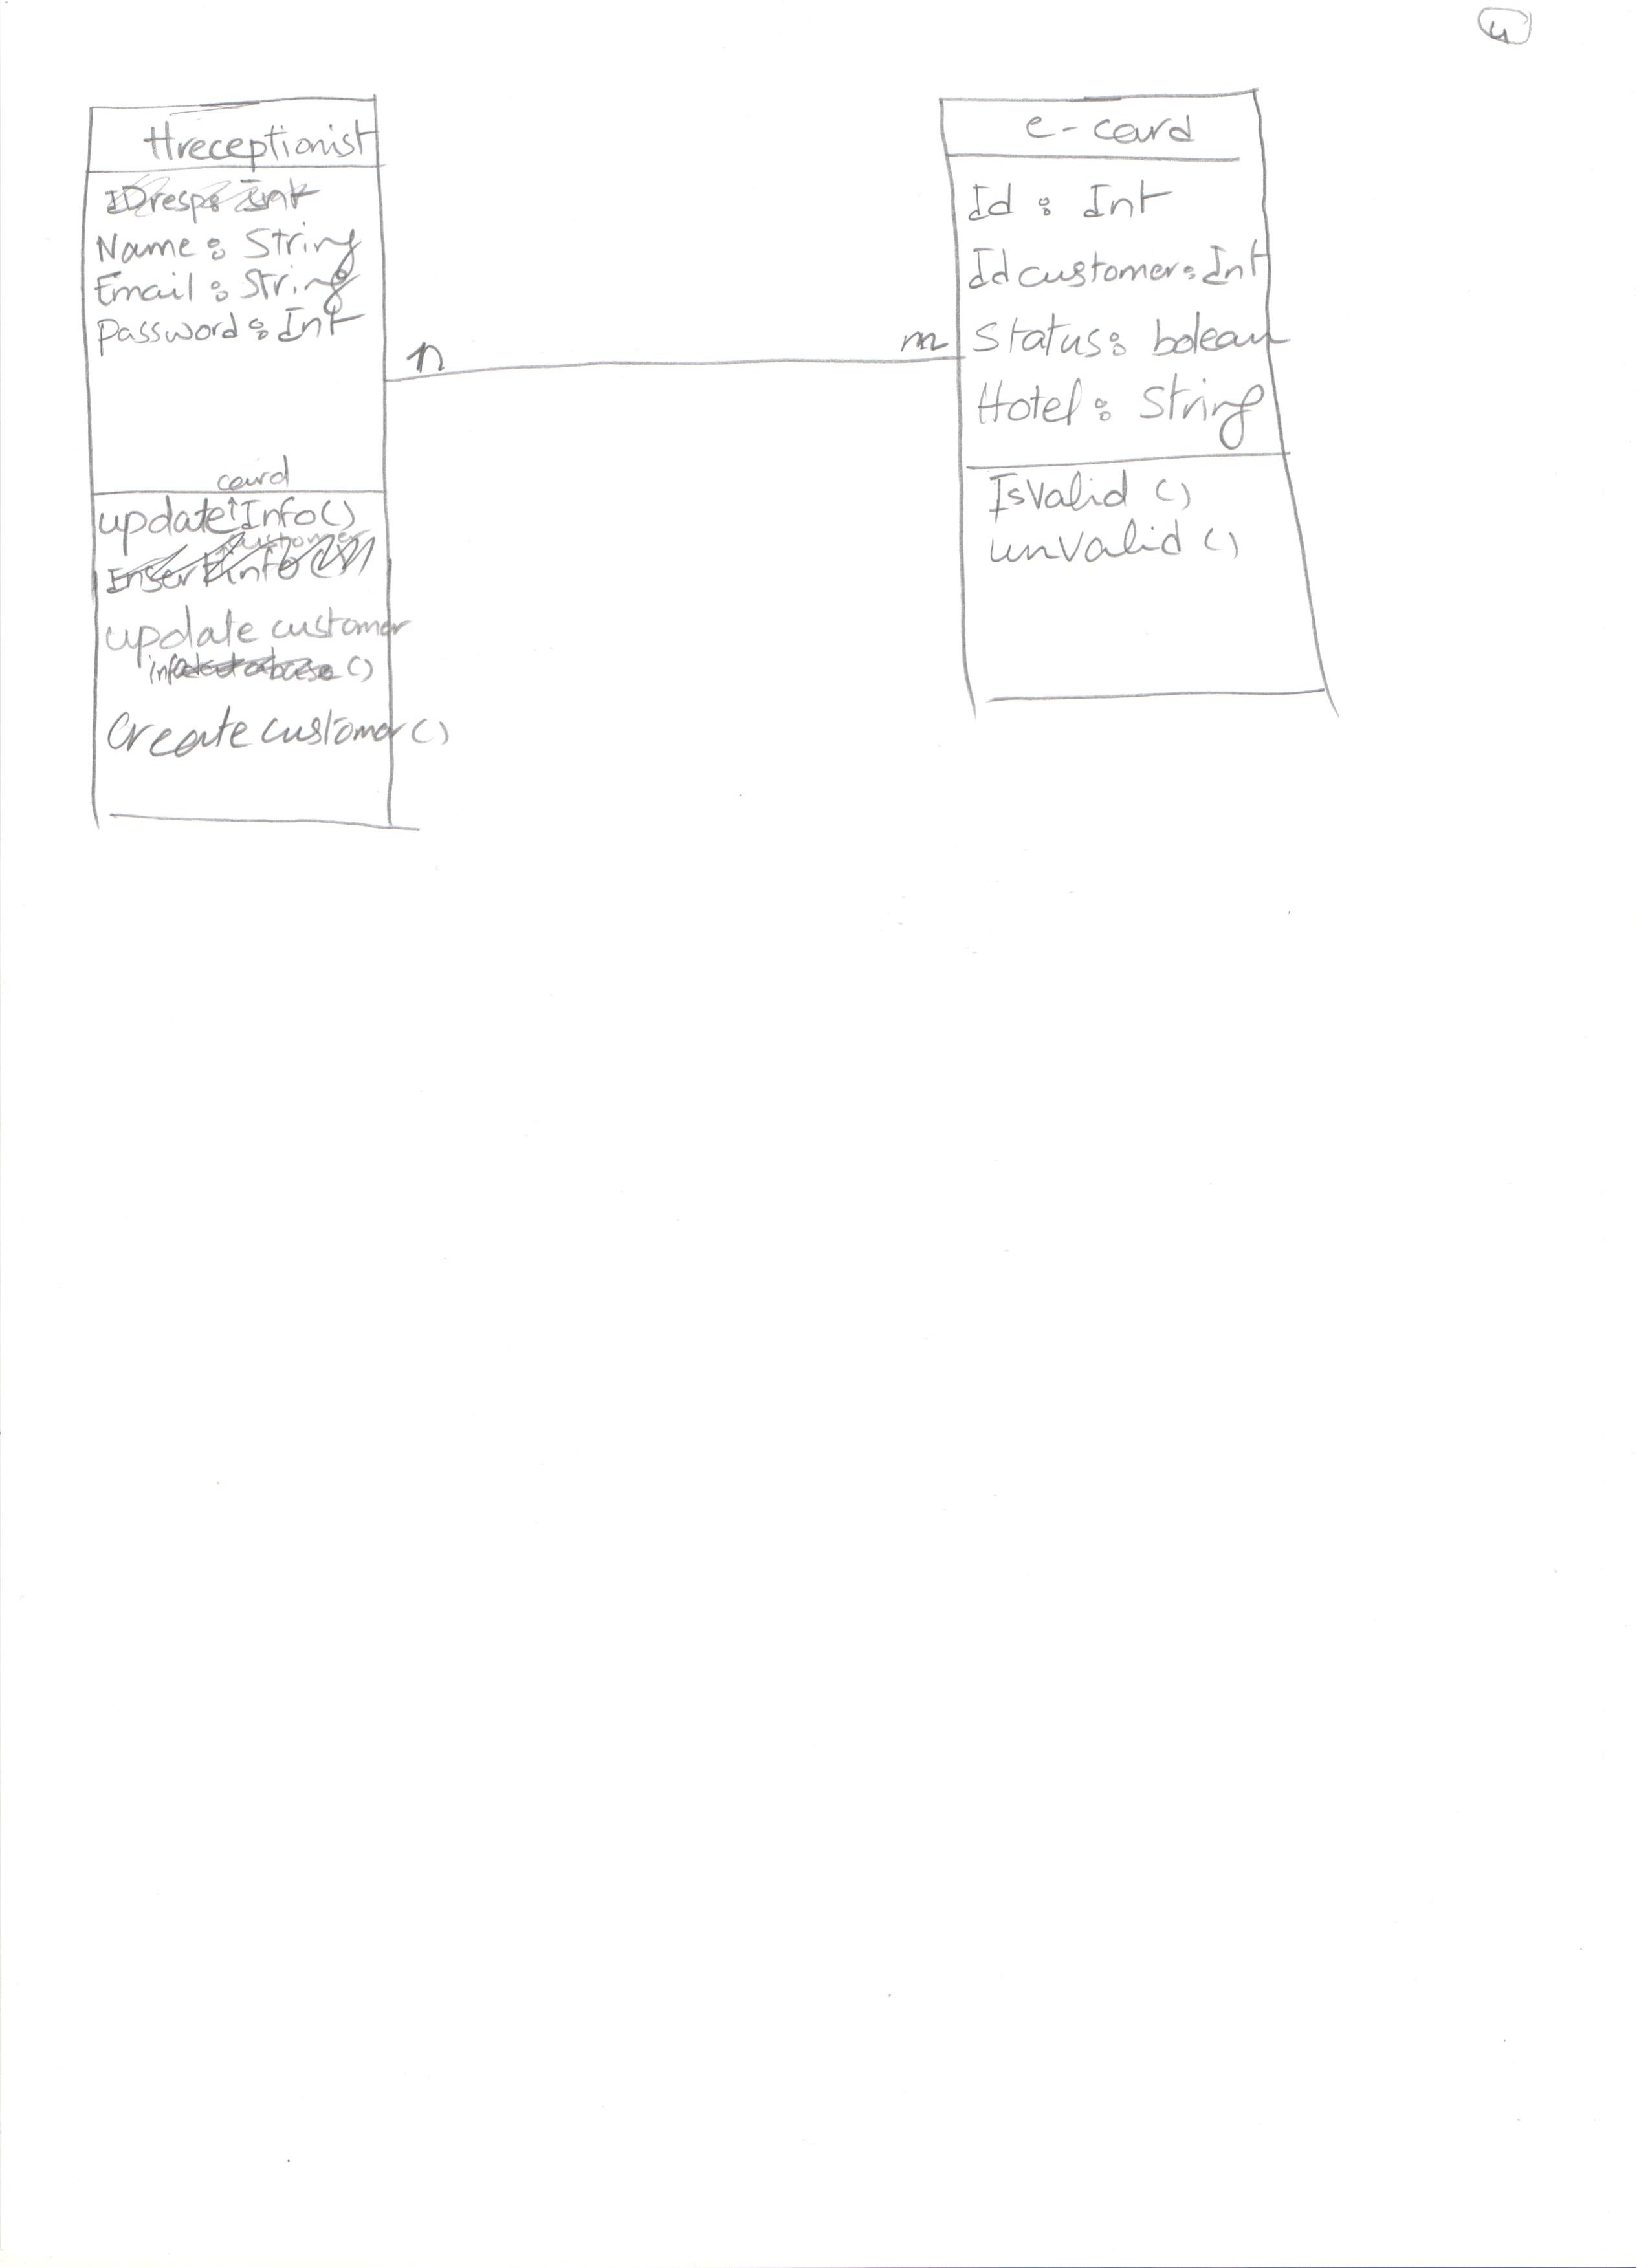 4
Hreceptionist
IDresp: Int
Name: String
Email: String
Password: Int
card
update Info()
customer
Insert Info()
update customer
info database ()
Create customer()
n
m
e-card
Id: Int
Idcustomer: Int
Status: bolean
Hotel: String
IsValid ()
unValid ()